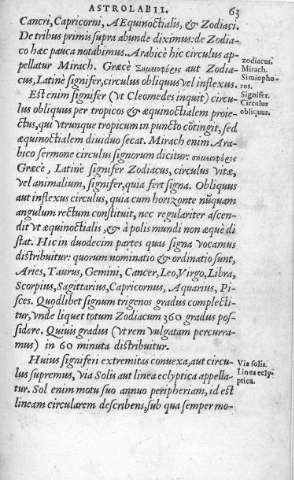 ASTROLABII. 63
Cancri, Capricorni, AEquinoctialis, & Zodiaci.
De tribus primis supra abunde diximus: de Zodia-
co hæc pauca notabimus. Arabicè hic circulus ap-
pellatur Mirach. Græcè aut Zodia-
cus, Latinè signifer, circulus obliquus vel inflexus.
zodiacus.
Mirach.
Simiopho-
ros.
Signifer.
Circulus
obliquus.
Est enim signifer (vt Cleomedes inquit) circu-
lus obliquus per tropicos & æquinoctialem proie-
ctus, qui vtrunque tropicum in puncto cōtingit, sed
æquinoctialem diuiduo secat. Mirach enim Ara-
bico sermone circulus signorum dicitur:
Græcè, Latinè signifer Zodiacus, circulus vitæ,
vel animalium, signifer, quia fert signa. Obliquus
aut inflexus circulus, quia cum horizonte nūquam
angulum rectum constituit, nec regulariter ascen-
dit vt æquinoctialis, & à polis mundi non æquè di-
stat. Hic in duodecim partes quas signa vocamus
distribuitur: quorum nominatio & ordinatio sunt,
Aries, Taurus, Gemini, Cancer, Leo, Virgo, Libra,
Scorpius, Sagittarius, Capricornus, Aquarius, Pi-
sces. Quodlibet signum trigenos gradus complecti-
tur, vnde liquet totum Zodiacum 360 gradus pos-
sidere. Quiuis gradus (vt rem vulgatam percurra-
mus) in 60 minuta distribuitur.
Huius signiferi extremitas conuexa, aut circu-
lus supremus, via Solis aut linea ecliptica appella-
tur. Sol enim motu suo annuo peripheriam, id est
lineam circularem describens, sub qua semper mo-
Via solis.
Linea ecly-
ptica.